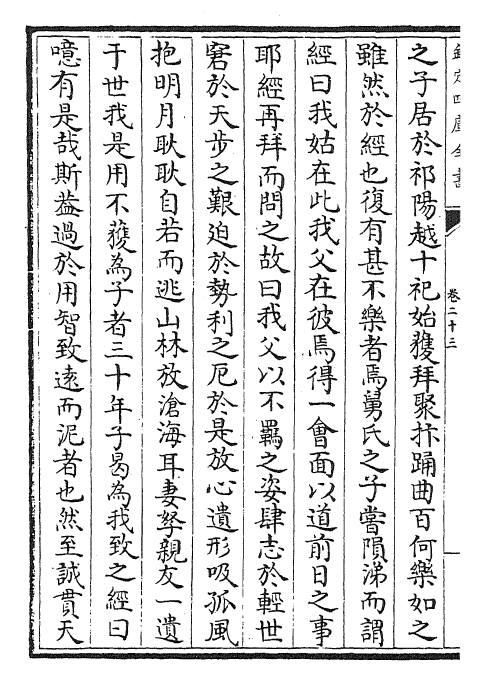 欽定四庫全書
卷二十三
之子居於祁陽越十祀始獲拜聚抃踊曲百何樂如之
雖然於經也復有甚不樂者焉舅氏之子嘗隕涕而謂
經曰我姑在此我父在彼焉得一會面以道前日之事
耶經再拜而問之故曰我父以不羈之姿肆志於輕世
窘於天步之艱迫於勢利之厄於是放心遺形吸孤風
抱明月耿耿自若而逃山林放滄海耳妻孥親友一遺
于世我是用不獲為子者三十年子曷為我致之經曰
噫有是哉斯葢過於用智致遠而泥者也然至誠貫天